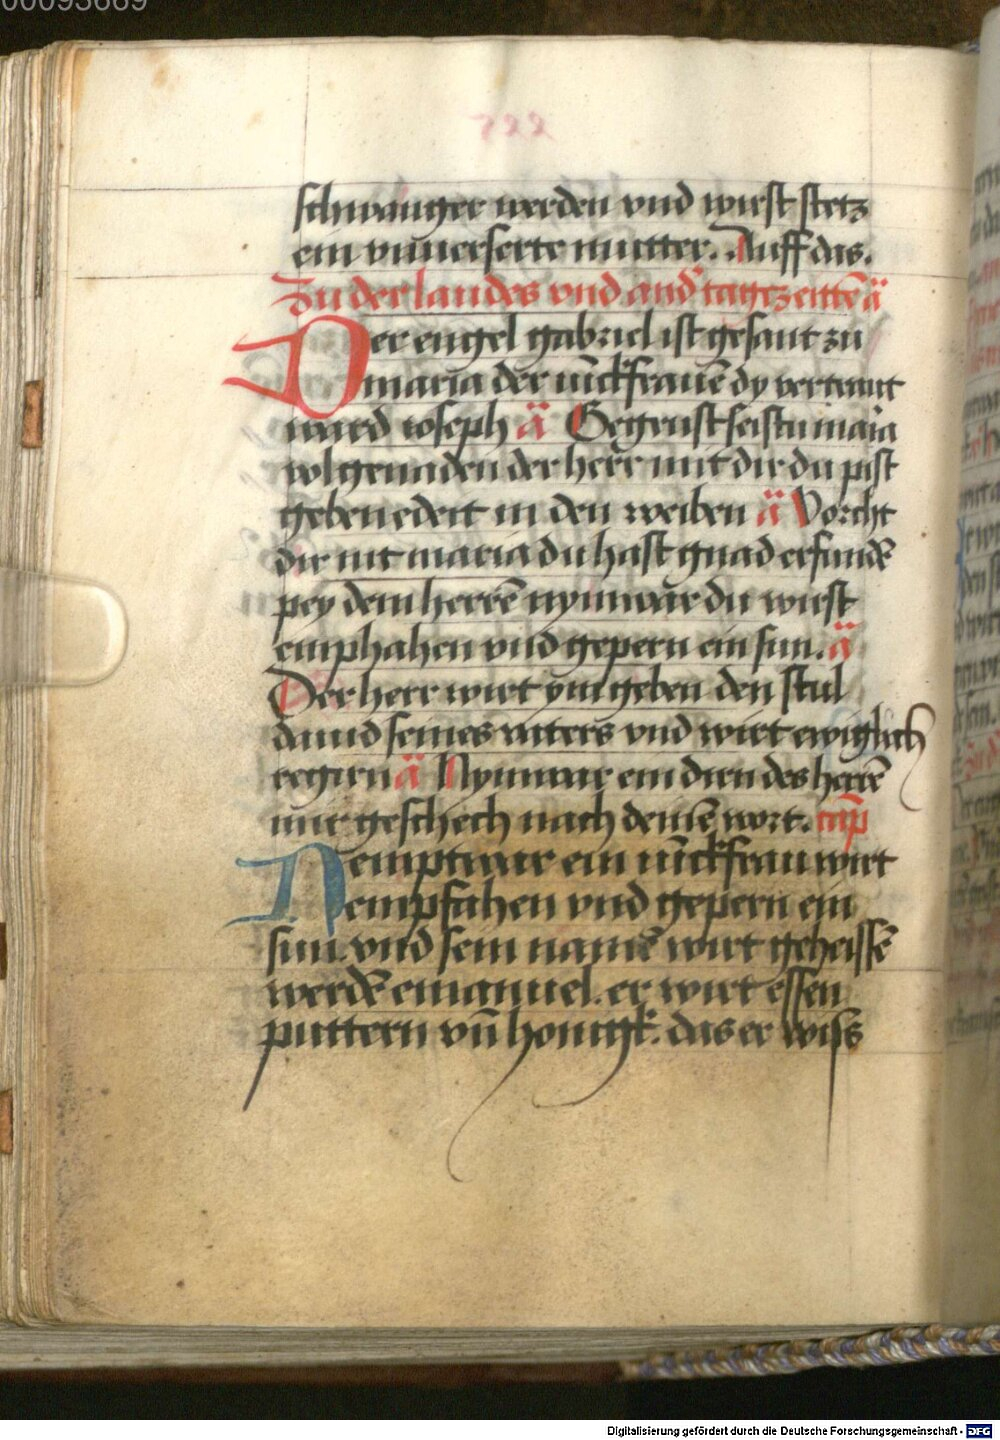 00093669
schwanger werden vnd wirst stetz
ein vnuerserte mutter. Auff das.
Zu der laudes vnd and̄ tagezeittē ä
Der engel gabriel ist gesant zu
maria der iūckfrauē dy vertraut
ward ioseph ä Gegrust seistu maria
vol genaden der herr mit dir du pist
gebenedeit in den weiben ä Vorcht
dir nit maria du hast gnad erfundē
pey dem herrē nymwar du wirst
emphahen vnd gepern ein sun. ä
Der herr wirt ym geben den stul
dauid seines vatters vnd wirt ewiglich
regirn ä Nymwar ein dirn des herrē
mir geschech nach deinē wort. cap̄
Nempt war ein iūckfrau wirt
empfahen vnd gepern ein
sun. vnd sein namē wirt geheissē
werdē emanuel. er wirt essen
puttern vn̄ honigk. das er wiss
Digitalisierung gefördert durch die Deutsche Forschungsgemeinschaft - DFG